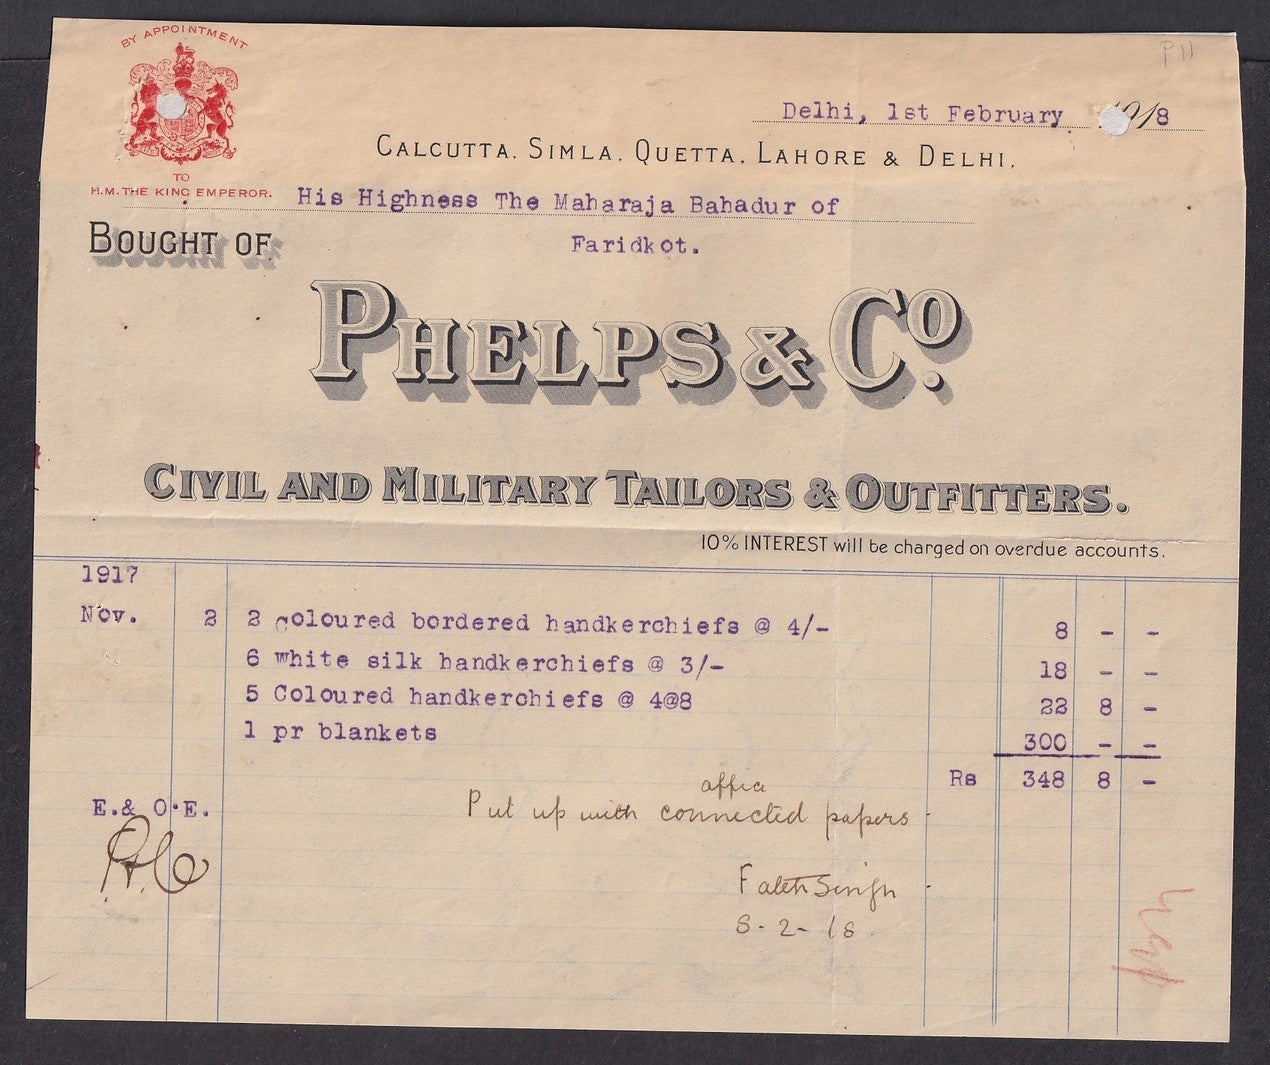 P 11
BY APPOINTMENT
TO
H.M. THE KING EMPEROR.
Delhi, 1st February 1918
CALCUTTA, SIMLA, QUETTA, LAHORE & DELHI,
His Highness The Maharaja Bahadur of
Faridkot.
BOUGHT OF
PHELPS & Co.
CIVIL AND MILITARY TAILORS & OUTFITTERS.
10% INTEREST will be charged on overdue accounts.
1917
Nov. 2 2 coloured bordered handkerchiefs @ 4/- 8 - -
6 White silk handkerchiefs @ 3/- 18 - -
5 Coloured handkerchiefs @ 4@8 22 8 -
1 pr blankets 300 - -
Rs 348 8 -
E.& O.E.
Put up with connected papers
Fateh Singh
8-2-18.